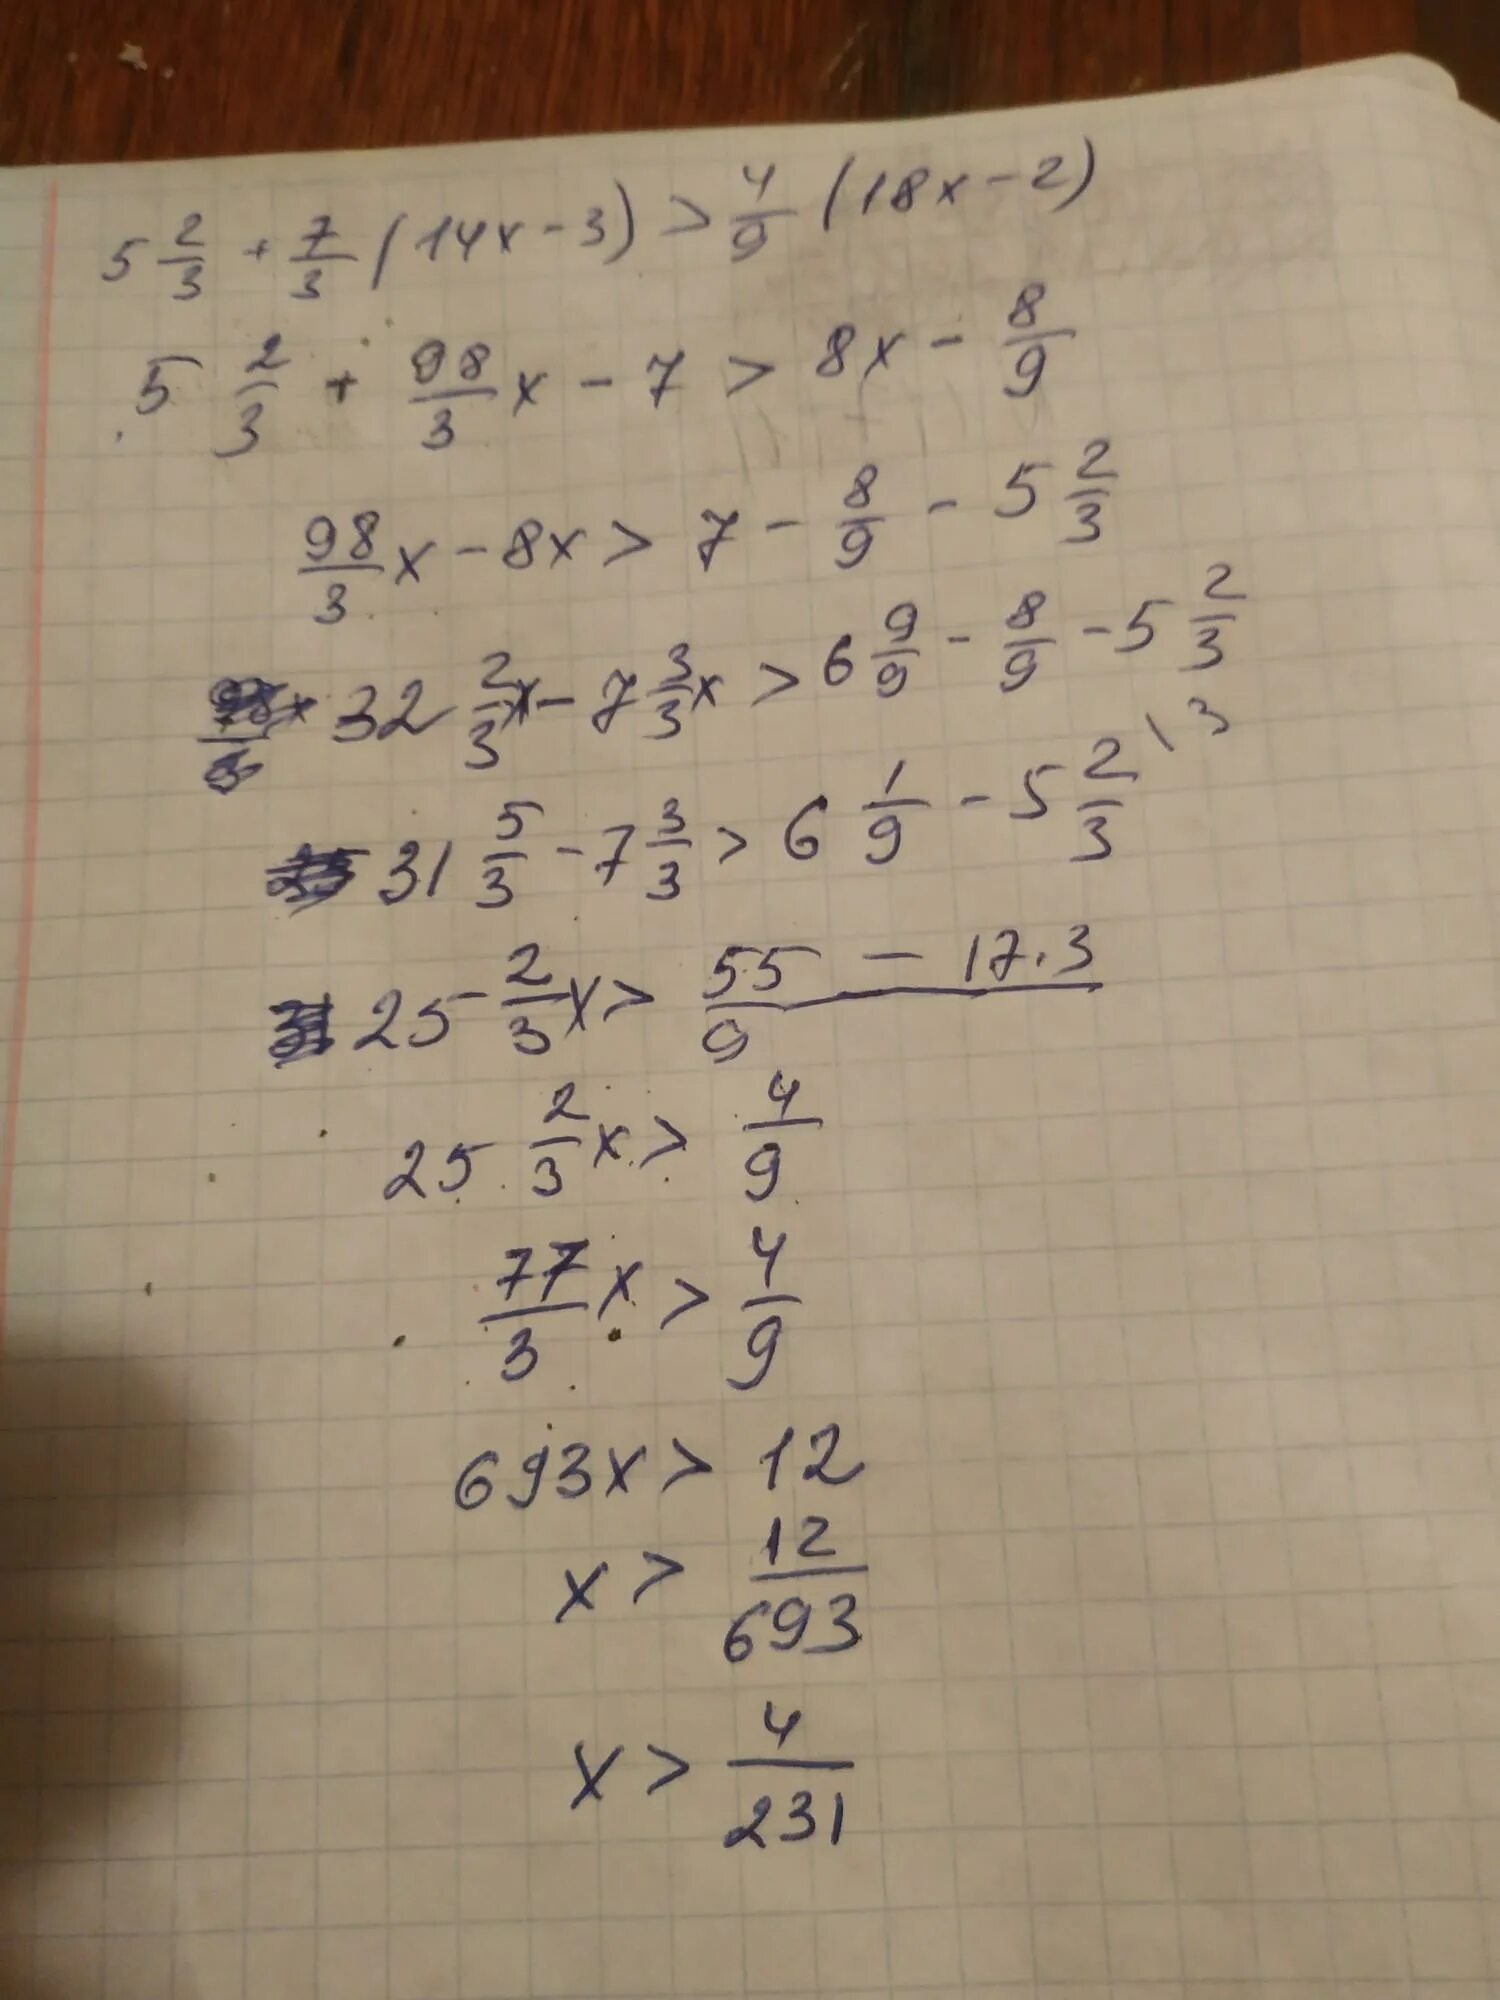 5 2/3 + 7/3 (14x - 3) > 4/9 (18x - 2)
5 2/3 + 98/3 x - 7 > 8x - 8/9
98/3 x - 8x > 7 - 8/9 - 5 2/3
32 2/3 x - 7 3/3 x > 6 9/9 - 8/9 - 5 2/3
31 5/3 - 7 3/3 > 6 1/9 - 5 2/3 \3
25 2/3 x > 55 - 17·3/9
25 2/3 x > 4/9
77/3 x > 4/9
693x > 12
x > 12/693
x > 4/231